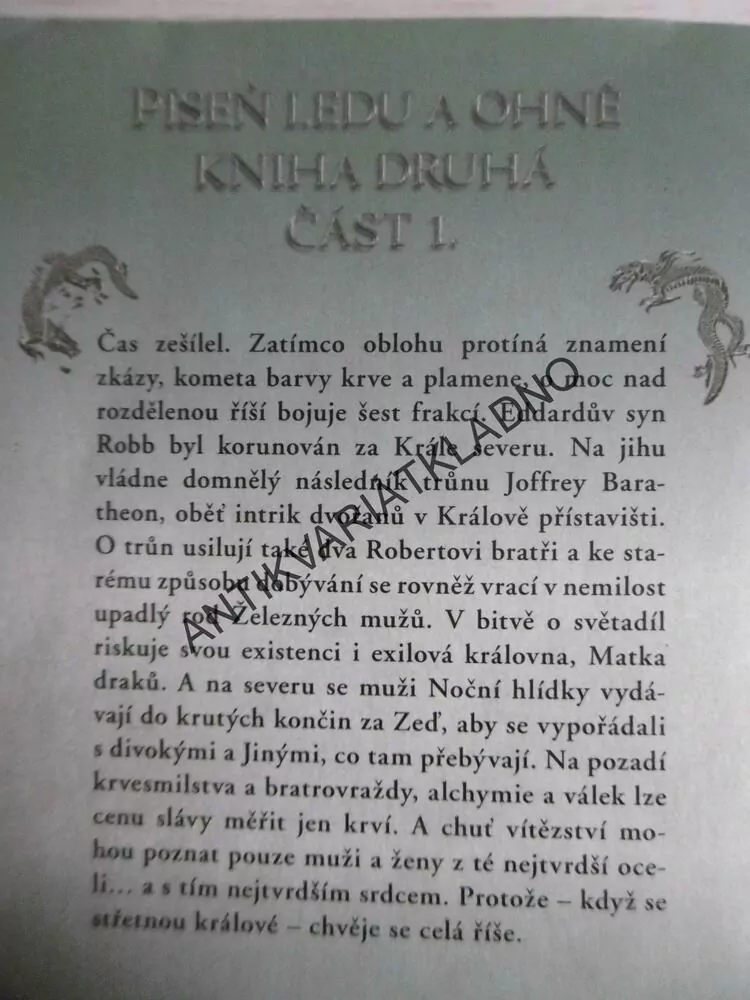 PÍSEŇ LEDU A OHNĚ
KNIHA DRUHÁ
ČÁST 1.
Čas zešílel. Zatímco oblohu protíná znamení
zkázy, kometa barvy krve a plamene, o moc nad
rozdělenou říší bojuje šest frakcí. Eddardův syn
Robb byl korunován za Krále severu. Na jihu
vládne domnělý následník trůnu Joffrey Bara-
theon, oběť intrik dvořanů v Králově přístavišti.
O trůn usilují také dva Robertovi bratři a ke sta-
rému způsobu dobývání se rovněž vrací v nemilost
upadlý rod Železných mužů. V bitvě o světadíl
riskuje svou existenci i exilová královna, Matka
draků. A na severu se muži Noční hlídky vydá-
vají do krutých končin za Zeď, aby se vypořádali
s divokými a Jinými, co tam přebývají. Na pozadí
krvesmilstva a bratrovraždy, alchymie a válek lze
cenu slávy měřit jen krví. A chuť vítězství mo-
hou poznat pouze muži a ženy z té nejtvrdší oce-
li... a s tím nejtvrdším srdcem. Protože – když se
střetnou králové – chvěje se celá říše.
ANTIKVARIATKLADNO